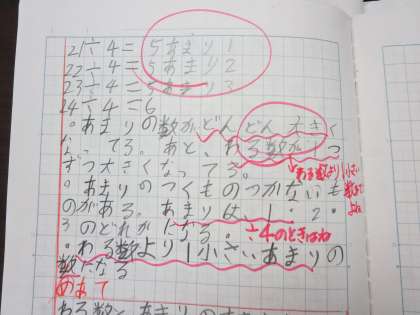 21÷4=5あまり1
22÷4=5あまり2
23÷4=5あまり3
24÷4=6
・あまりの数がどんどん大きく
なってる。あと、わる数が1つ
ずつ大きくなってる。
わる数より1小さい
数までだよね
・あまりのつくものつかないも
のがある。あまりは、1・2・
3のどれかになる。÷4のときはね
・わる数より1小さいあまりの
数になる
めあて
わる数とあまりの